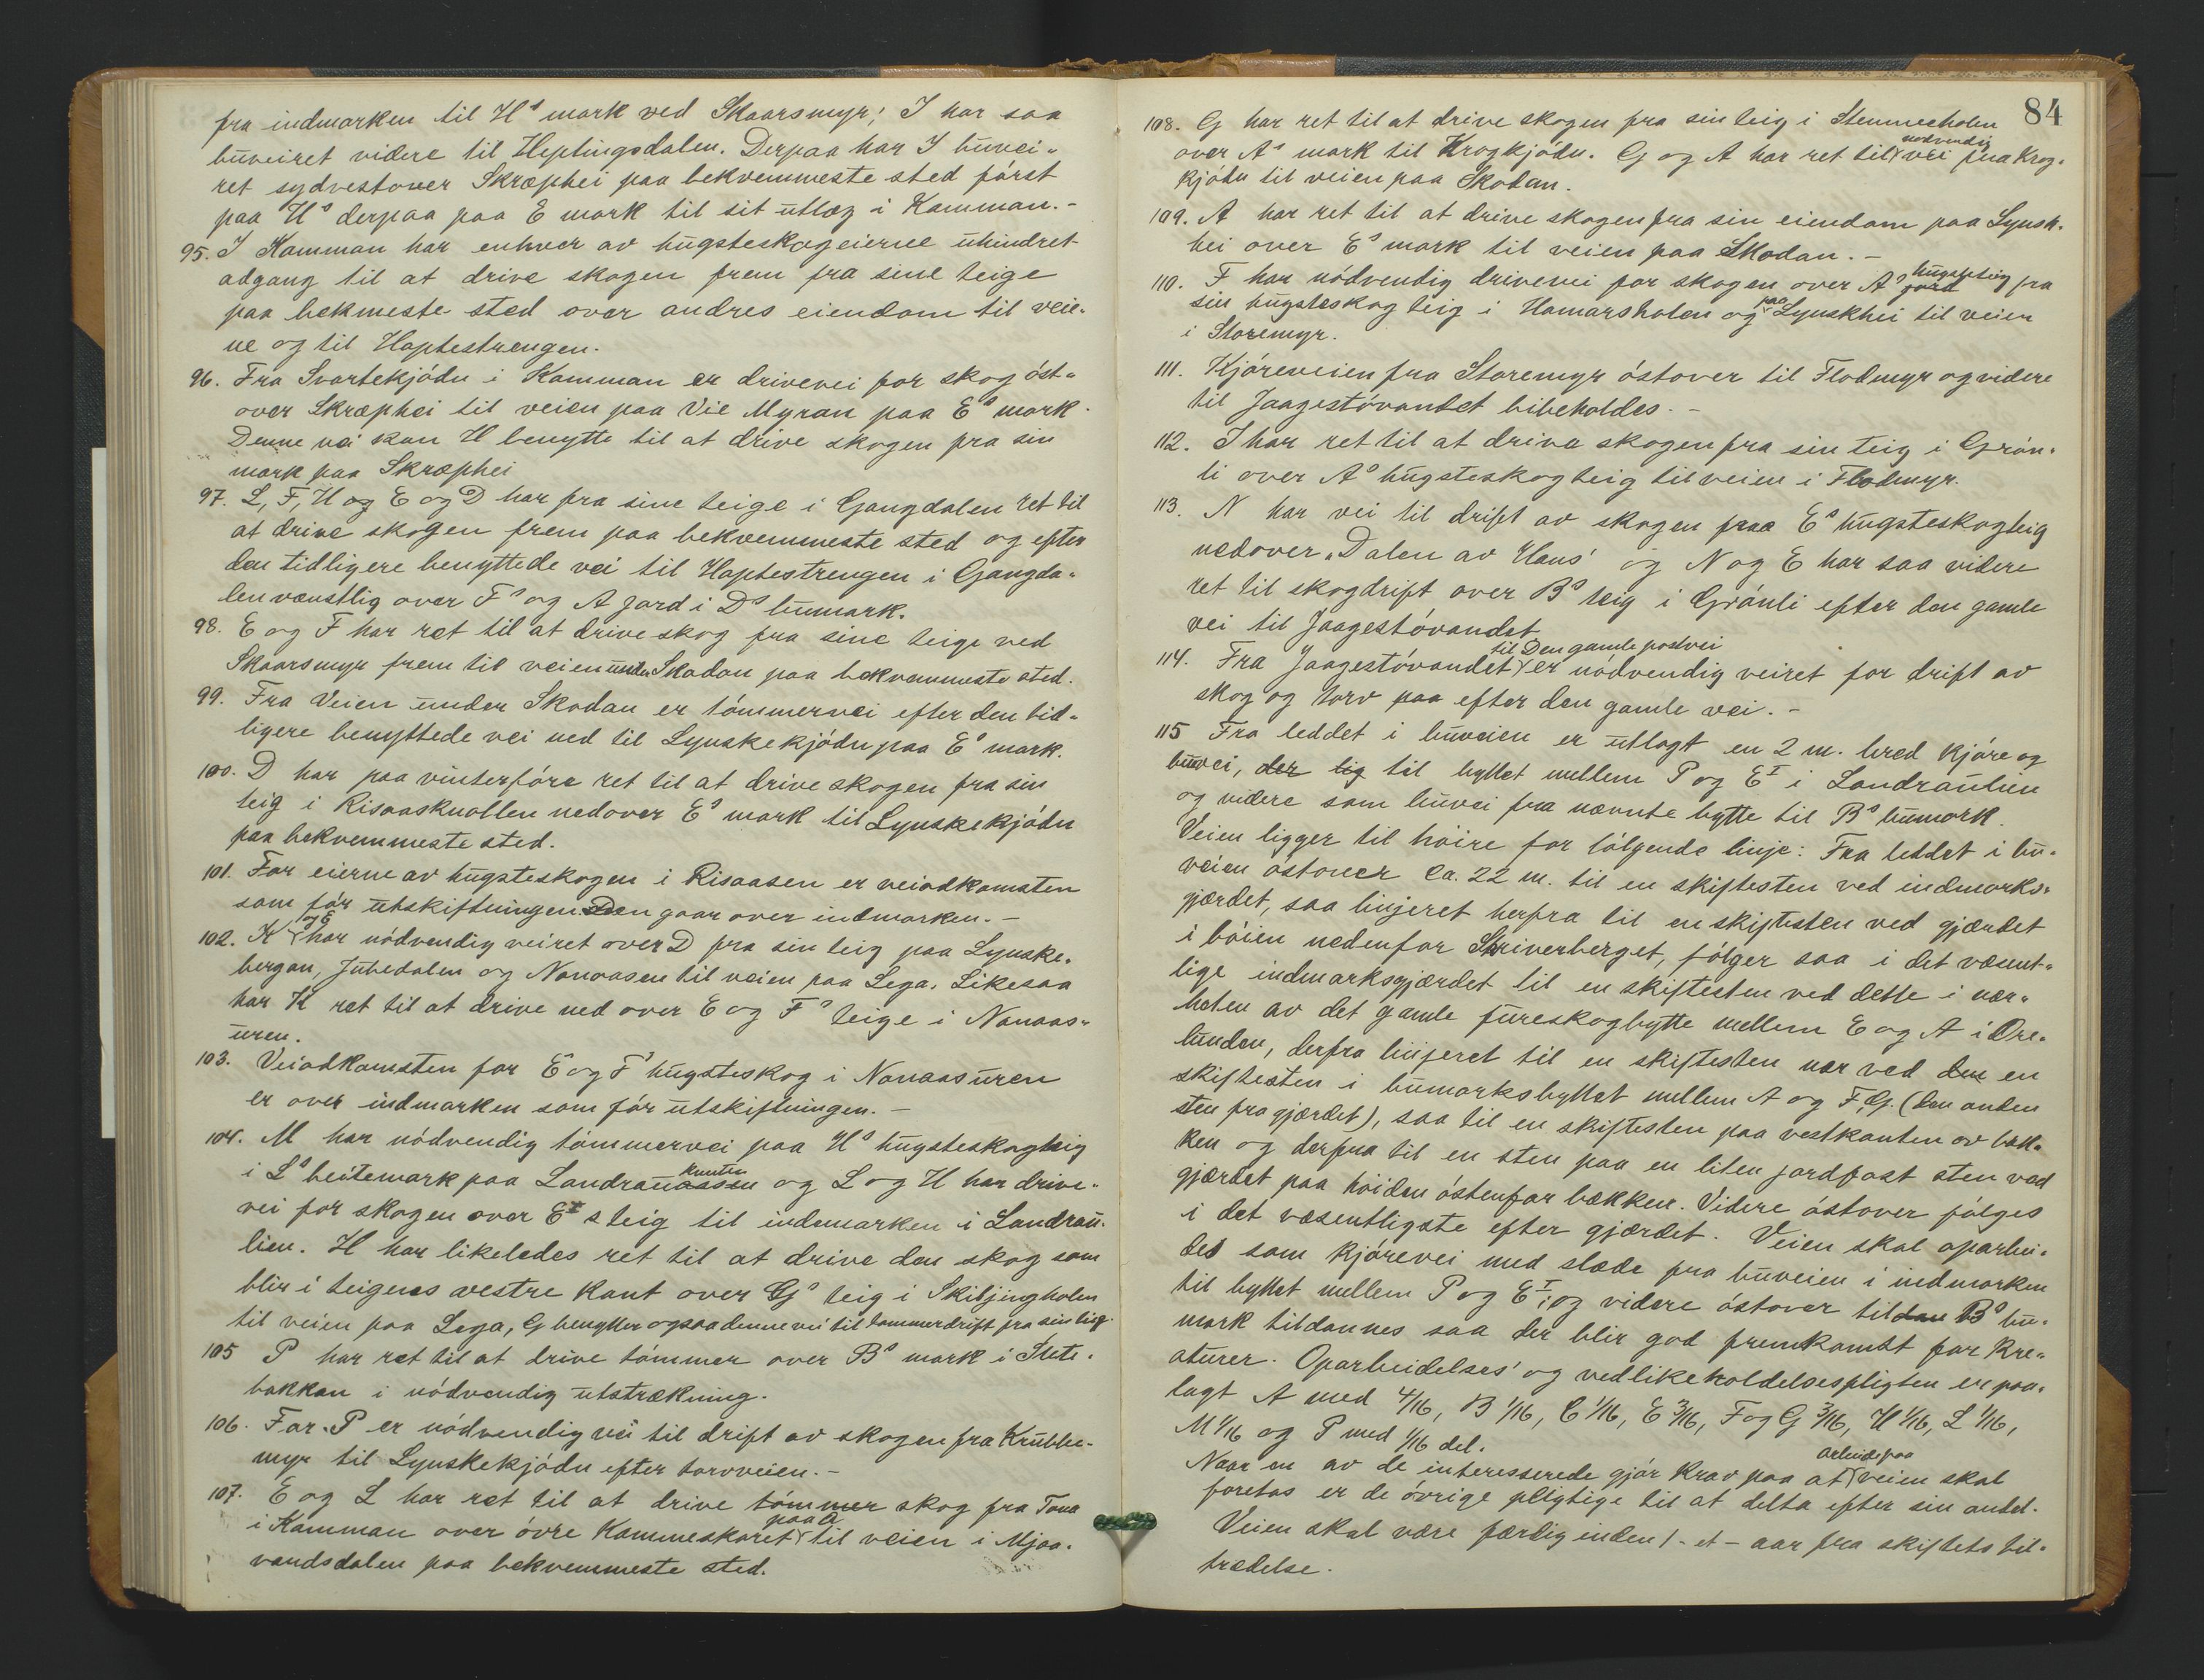 fra indmarken til Hs mark ved Skaarsmyr; I har saa
buveiret videre til Heptingsdalen. Derpaa har I buvei-
ret sydvestover Skræphei paa bekvemmeste sted først
paa Hs derpaa paa E mark til sit utlæg i Kamman.-
95. I Kamman har enhver av hugsteskogeierne uhindret
adgang til at drive skogen frem fra sine teige
paa bekmeste sted over andres eiendom til veie-
ne og til Haptestrengen.
96. Fra Svartekjødn i Kamman er drivevei for skog øst-
over Skræphei til veien paa Vie Myran paa Es mark.
Denne vei kan H benytte til at drive skogen fra sin
mark paa Skræphei
97. L, F, H og E og D har fra sine teige i Gangdalen ret til
at drive skogen frem paa bekvemmeste sted og efter
den tidligere benyttede vei til Haptestrengen i Gangda-
len væustlig over Fs og A jord i Ds bumark.
98. E og F har ret til at drive skog fra sine teige ved
Skaarsmyr frem til veien under Skodan paa bekvemmeste sted.
99. Fra Veien under Skodan er tømmervei efter den tid-
ligere benyttede vei ned til Lynskekjødn paa Es mark.
100. D har paa vinterføre ret til at drive skogen fra sin
teig i Risaasknatten nedover Es mark til Lynskekjødn
paa bekvemmeste sted.
101. For eierne av hugsteskogen i Risaasen er veiadkomsten
som før utskiftningen. Den gaar over indmarken.-
102. K og E har nødvendig veiret over D fra sin teig paa Lynske-
bergan, Jubedalen og Nonaasen til veien paa Lega. Likesaa
har K ret til at drive ned over E og Fs teige i Nonaas-
uren.
103. Veiadkomsten for E og Fs hugsteskog i Nonaasuren
er over indmarken som før utskiftningen.-
104. M har nødvendig tømmervei paa Hs hugsteskogteig
i Ls beitemark paa Landrauassen knuten og L og H har drive-
vei for skogen over EI s teig til indemarken i Landrau-
lien. H har likeledes ret til at drive den skog som
blir i teigens vestre kant over Gs teig i Skiljingholen
til veien paa Lega, G benytter ogsaa denne vei til tommerdrift fra sin teig.
105 P har ret til at drive tømmer over Bs mark i Stete-
bakkan i nødvendig utstrækning.
106. For P er nødvendig vei til drift av skogen fra Krubbe-
myr til Lynskekjødn efter torvveien.-
107. E og L har ret til at drive tømmer skog fra Tona
i Kamman over øvre Kammeskaret paa A til veien i Mjaa-
vandsdalen paa bekvemmeste sted.
84
108. G har ret til at drive skogen fra sin teig i Stemmeholen
over As mark til Krogkjødn. G og A har ret til nødvendig vei fra Krog-
kjødn til veien paa Skodan.
109. A har ret til at drive skogen fra sin eiendom paa Lynsk-
hei over Es mark til veien paa Skodan.-
110. F har nødvendig drivevei for skogen over As jord hugsteteig fra
sin hugsteskog teig i Hamarsholen og paa Lynskhei til veien
i Storemyr.
111. Kjøreveien fra Storemyr østover til Flodmyr og videre
til Jaagestøvandet bibeholdes.-
112. I har ret til at drive skogen fra sin teig i Grøn-
li over As hugsteskogteig til veien i Flodmyr.
113. N har vei til drift av skogen fraa Es hugsteskogteig
nedover „Dalen av Hans" og N og E har saa videre
ret til skogdrift over Bs teig i Grønli efter den gamle
vei til Jaagestøvandet.
114. Fra Jaagestøvandet til Den gamle postvei er nødvendig veiret for drift av
skog og torv paa efter den gamle vei.-
115 Fra leddet i buveien er utlagt en 2 m. bred kjøre og
buvei, der lig til byttet mellem P og EI i Landraulien
og videre som buvei fra nævnte bytte til Bs bumark.
Veien ligger til høire for følgende linje: Fra leddet i bu-
veien østover ca. 22 m. til en skiftesten ved indmarks-
gjærdet, saa linjeret herfra til en skiftesten ved gjærdet
i bøien nedenfor Skriverberget, følger saa i det væsent-
lige indmarksgjærdet til en skiftesten ved dette i nær-
heten av det gamle fureskogbytte mellem E og A i Ore-
lunden, derfra linjeret til en skiftesten nær ved den en
skiftesten i bumarksbyttet mellem A og F, G. (den anden
sten fra gjærdet), saa til en skiftesten paa vestkanten av bæk-
ken og derfra til en sten paa en liten jordfast sten ved
gjærdet paa høiden østenfor bækken. Videre østover følges
i det væsentligste efter gjærdet. Veien skal oparbei-
des som kjørevei med slæde fra buveien i indmarken
til byttet mellem P og EI; og videre østover til den Bs bu-
mark tildannes saa der blir god fremkomst for kre-
aturer. Oparbeidelses' og vedlikeholdelsespligten er paa-
lagt A med 4/16, B 1/16, C 1/16, E 3/16, F og G 3/16, H 1/16, L 1/16,
M 1/16 og P med 1/16 del.
Naar en av de interesserede gjør krav paa at arbeide paa veien skal
foretas er de øvrige pligtige til at delta efter sin andel.
Veien skal være færdig inden 1 - et - aar fra skiftets til-
trædelse.